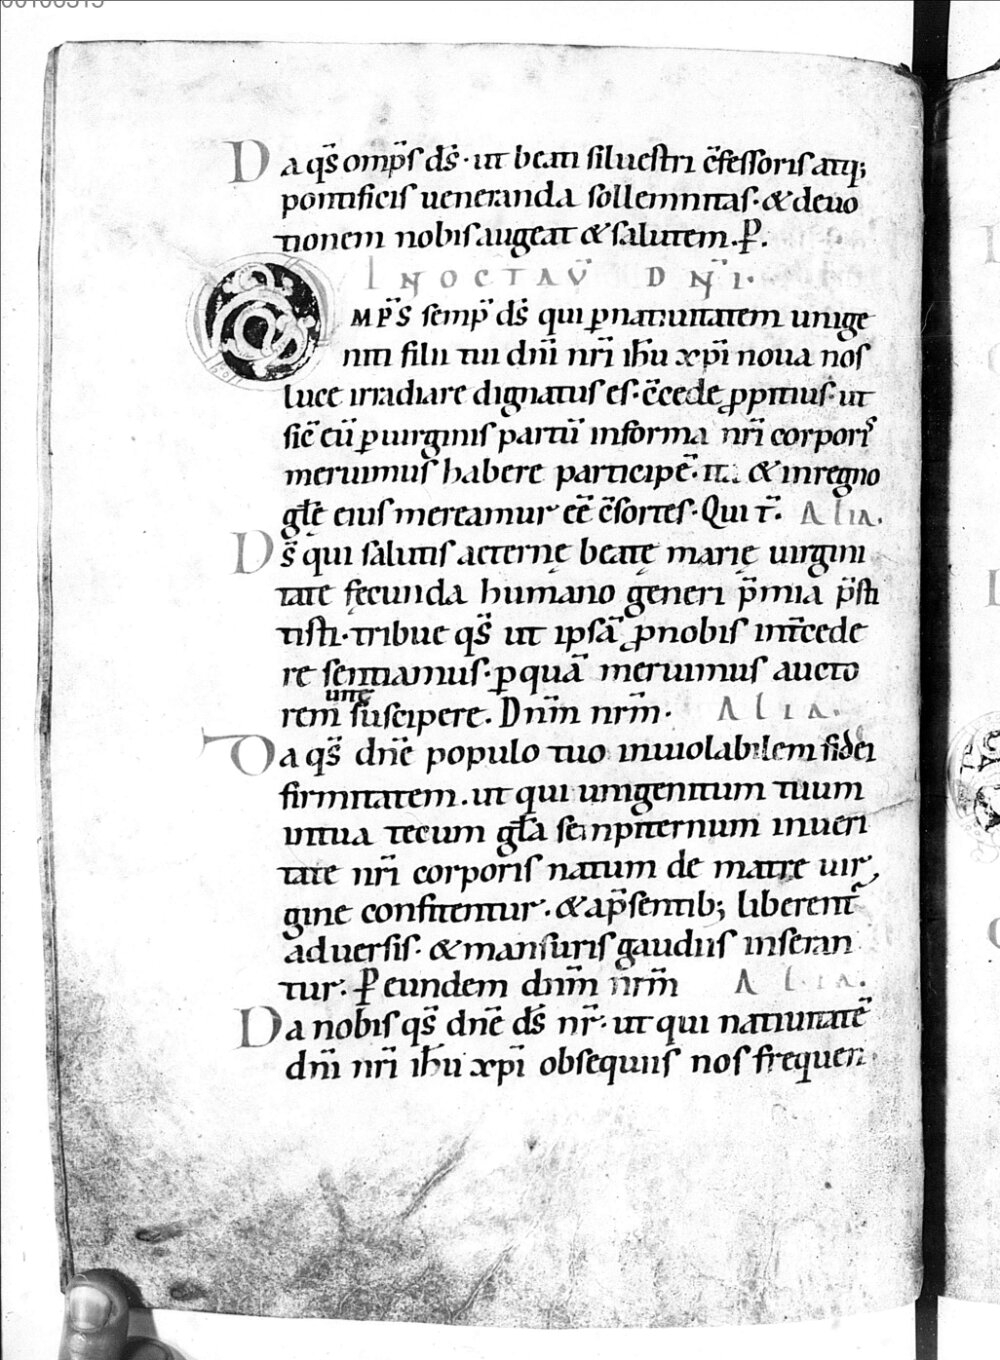 Da q̄s omp̄s d̄s · ut beati siluestri c̄fessoris atq;
pontificis ueneranda sollemnitas · & deuo
tionem nobis augeat & salutem. P̄.
IN OCTAV̄ DN̄I.
OMP̄S semp̄ d̄s qui p̱ natiuitatem unige
niti filii tui dn̄i nr̄i ih̄u xp̄i noua nos
luce irradiare dignatus es · c̄cede ꝓpitius · ut
sic̄ eū p̱ uirginis partū in forma nr̄i corporis
meruimus habere participē · ita & in regno
gl̄ę eius mereamur eē c̄sortes · Qui t̄. ALIA.
Ds̄ qui salutis aeternę beatę marię uirgini
tate fęcunda humano generi p̄mia p̄sti
tisti · tribue q̄s ut ipsā ꝓ nobis int̄cede
re sentiamus · p̱ quā meruimus aucto
rem uitę suscipere. Dn̄m nr̄m · ALIA.
Da q̄s dn̄e populo tuo inuiolabilem fidei
firmitatem. ut qui unigenitum tuum
in tua tecum gl̄a sempiternum in ueri
tate nr̄i corporis natum de matre uir
gine confitentur · & a p̄sentib; liberent̄
aduersis · & mansuris gaudiis inseran
tur · P̱ eundem dn̄m nr̄m ALIA.
Da nobis q̄s dn̄e d̄s nr̄ · ut qui natiuitatē
dn̄i nr̄i ih̄u xp̄i obsequiis nos frequen